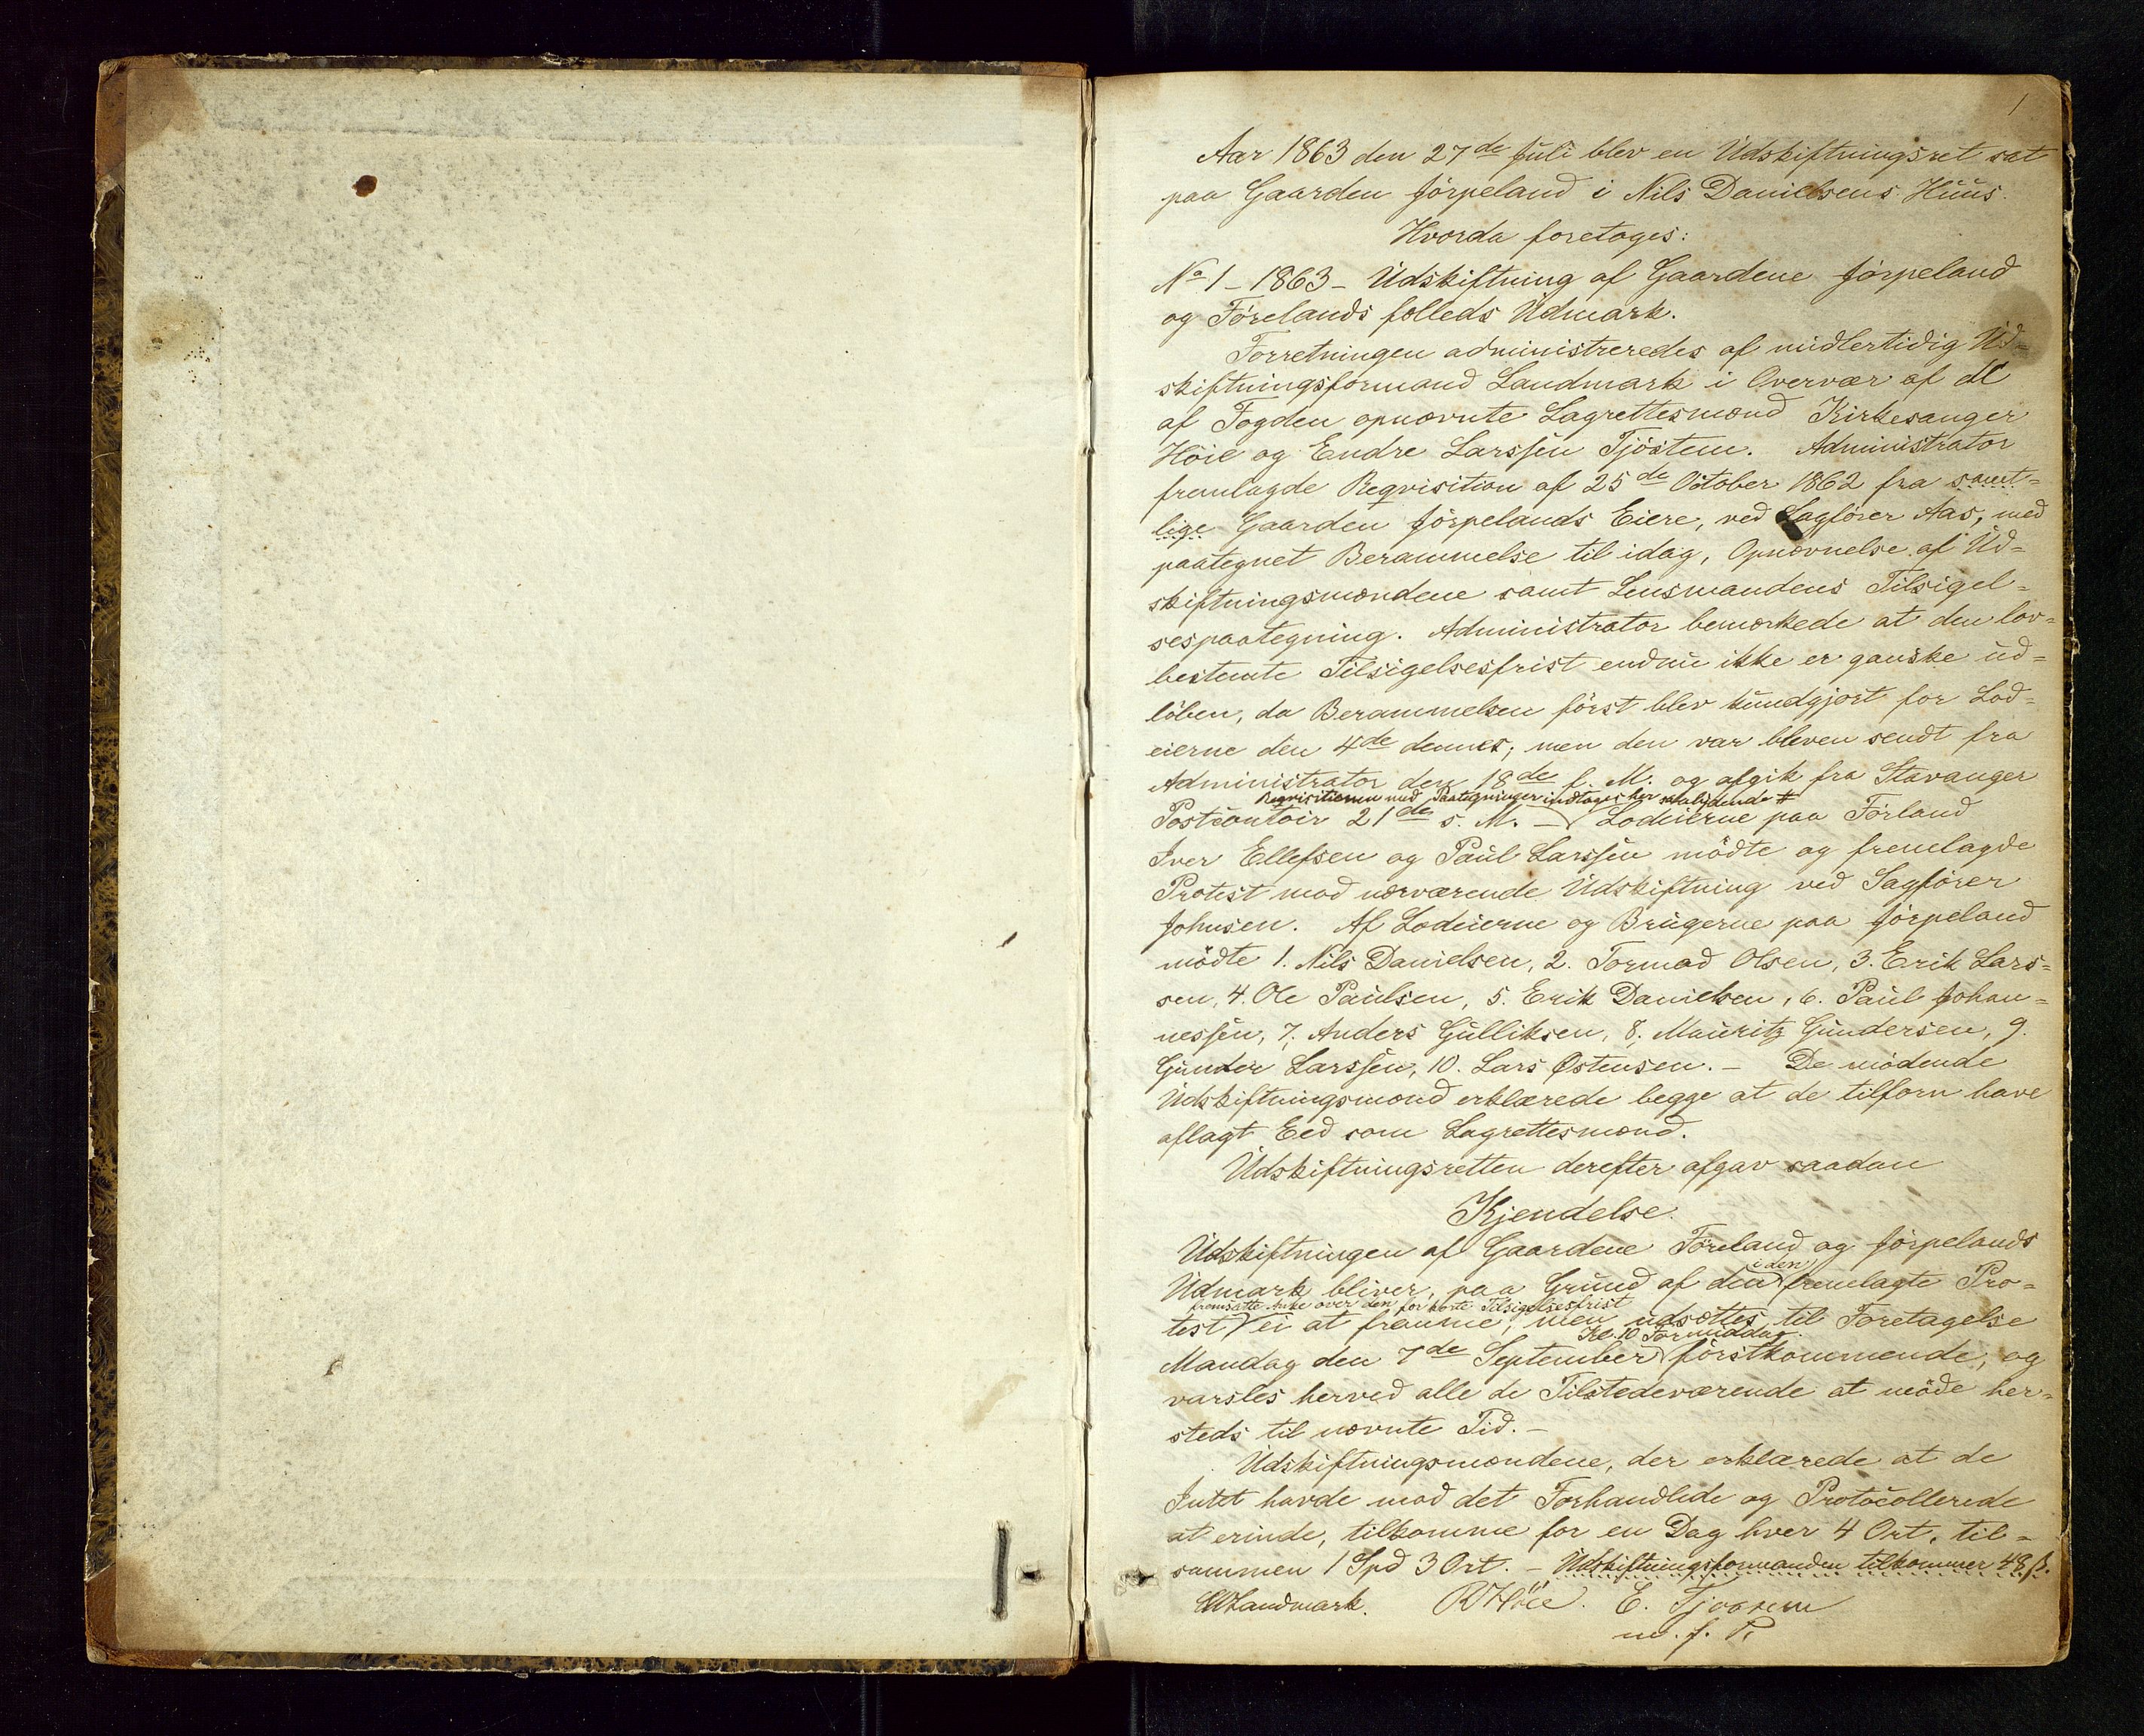 1
Aar 1863 den 27de Juli blev en Udskiftningsret sat
paa Gaarden Jörpeland i Nils Danielsens Huus.
Hvorda foretoges:
No 1 - 1863 - Udskiftning af Gaardene Jörpeland
og Förelands fælleds Udmark.
Forretningen administreredes af midlertidig Ud-
skiftningsformand Landmark i Overvær af de
af Fogden opnævnte Lagrettesmænd Kirkesanger
Höie og Endre Larssen Tjöstem. Administrator
fremlagde Reqvisition af 25de October 1862 fra samt=
lige Gaarden Jörpelands Eiere, ved Sagförer Aas, med
paategnet Berammelse til idag, Opnævnelse af Ud=
skiftningsmændene samt Lensmandens Tilsigel=
sespaategning. Administrator bemærkede at den lov=
bestemte Tilsigelsesfrist endnu ikke er ganske ud=
löben, da Berammelsen först blev kundgjort for Lod=
eierne den 4de dennes; men den var bleven sendt fra
Administrator den 18de f. M. og afgik fra Stavanger
Reqvisitionen med Paategninger indtages her saalydende #
Postcontoir 21de s. M. – Lodeierne paa Förland
Iver Ellefsen og Paul Larssen mödte og fremlagde
Protest mod nærværende Udskiftning ved Sagförer
Johnsen. Af Lodeierne og Brugerne paa Jörpeland
mödte 1. Nils Danielsen, 2. Tormod Olsen, 3. Erik Lars=
sen, 4. Ole Paulsen, 5. Erik Danielsen, 6. Paul Johan=
nessen, 7. Anders Gulliksen, 8. Mauritz Gundersen, 9.
Gunder Larssen, 10. Lars Østensen. – De mödende
Udskiftningsmænd erklærede begge at de tilforn have
aflagt Eed som Lagrettesmænd.
Udskiftningsretten derefter afgav saadan
Kjendelse.
Udskiftningen af Gaardene Föreland og Jörpelands
i den
Udmark bliver, paa Grund af den fremlagte Pro=
fremsatte Anke over den for korte Tilsigelsesfrist
test ei at fremme, men udsættes til Foretagelse
Kl. 10 Formiddag.
Mandag den 7de September förstkommende, og
varsles herved alle de Tilstedeværende at möde her=
steds til nævnte Tid. –
Udskiftningsmændene, der erklærede at de
Intet havde mod det Forhandlede og Protocollerede
at erindre, tilkomme for en Dag hver 4 Ort, til=
sammen 1 Spd 3 Ort. – Udskiftningsformanden tilkommer 48 ß.
Landmark. R Höie. E. Tjostem
m. f. P.